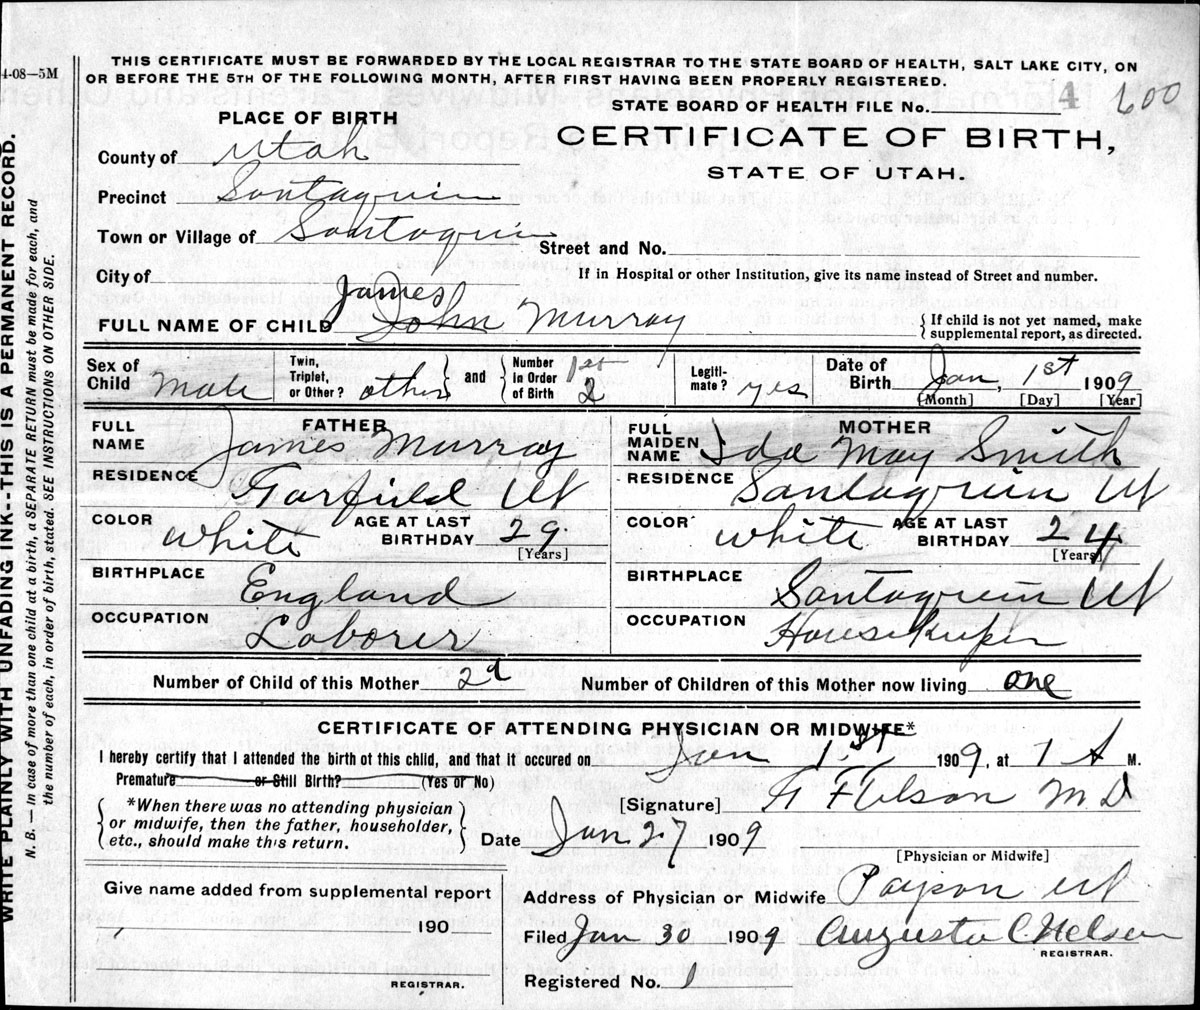 4-08—5M
THIS CERTIFICATE MUST BE FORWARDED BY THE LOCAL REGISTRAR TO THE STATE BOARD OF HEALTH, SALT LAKE CITY, ON
OR BEFORE THE 5TH OF THE FOLLOWING MONTH, AFTER FIRST HAVING BEEN PROPERLY REGISTERED.
STATE BOARD OF HEALTH FILE No. 4 600
PLACE OF BIRTH
CERTIFICATE OF BIRTH,
STATE OF UTAH.
County of Utah
Precinct Santaquin
Town or Village of Santaquin
Street and No.
City of
If in Hospital or other Institution, give its name instead of Street and number.
James
FULL NAME OF CHILD John Murray
{ If child is not yet named, make
supplemental report, as directed.
Sex of Child Male
Twin, Triplet, or Other? other } and { Number in Order of Birth 1st 2
Legiti- mate? yes
Date of Birth Jan, 1st 1909
[Month] [Day] [Year]
FATHER
FULL NAME James Murray
RESIDENCE Garfield Ut
COLOR white AGE AT LAST BIRTHDAY 29
[Years]
BIRTHPLACE England
OCCUPATION Laborer
MOTHER
FULL MAIDEN NAME Ida May Smith
RESIDENCE Santaquin Ut
COLOR white AGE AT LAST BIRTHDAY 24
[Years]
BIRTHPLACE Santaquin Ut
OCCUPATION Housekeeper
Number of Child of this Mother 2d Number of Children of this Mother now living one
CERTIFICATE OF ATTENDING PHYSICIAN OR MIDWIFE*
I hereby certify that I attended the birth of this child, and that it occured on Jan 1st 1909, at 1 A M.
Premature or Still Birth? (Yes or No)
{ *When there was no attending physician
or midwife, then the father, householder,
etc., should make this return. }
[Signature] M D
Date Jan 27 1909
[Physician or Midwife]
Give name added from supplemental report
190
REGISTRAR.
Address of Physician or Midwife Payson Ut
Filed Jan 30 1909 Augusta C. Nelson
REGISTRAR.
Registered No. 1
WRITE PLAINLY WITH UNFADING INK--THIS IS A PERMANENT RECORD.
N. B. — In case of more than one child at a birth, a SEPARATE RETURN must be made for each, and
the number of each, in order of birth, stated. SEE INSTRUCTIONS ON OTHER SIDE.